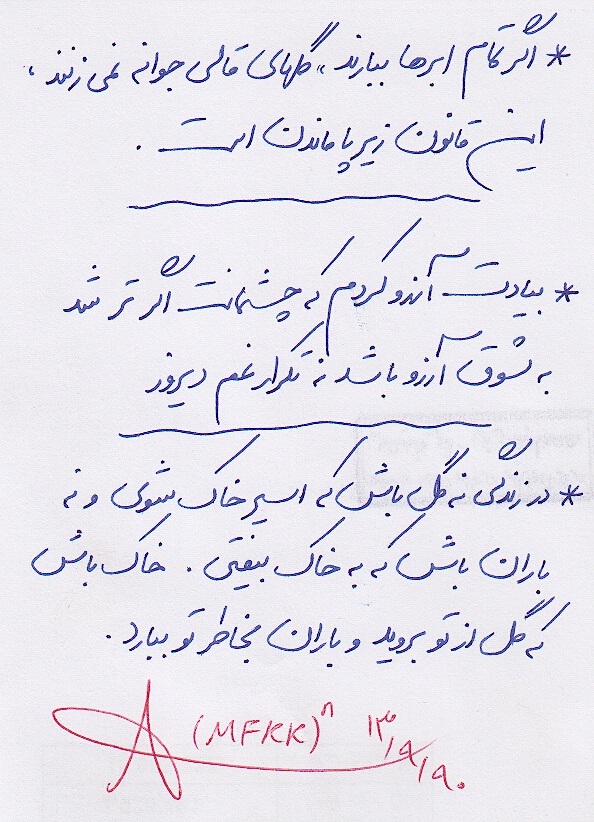 * اگر تمام ابرها ببارند، گلهای قالی جوانه نمی زنند ،
این قانون زیر پا ماندن است .
* بیادت آرزو کردم که چشمانت اگر تر شد
به شوق آرزو باشد نه تکرار غم دیروز
* در زندگی نه گل باش که اسیر خاک شوی و نه
باران باش که به خاک بیفتی . خاک باش
که گل از تو بروید و باران بخاطر تو ببارد .
(MFKK)ⁿ ۱۳/۹/۹۰